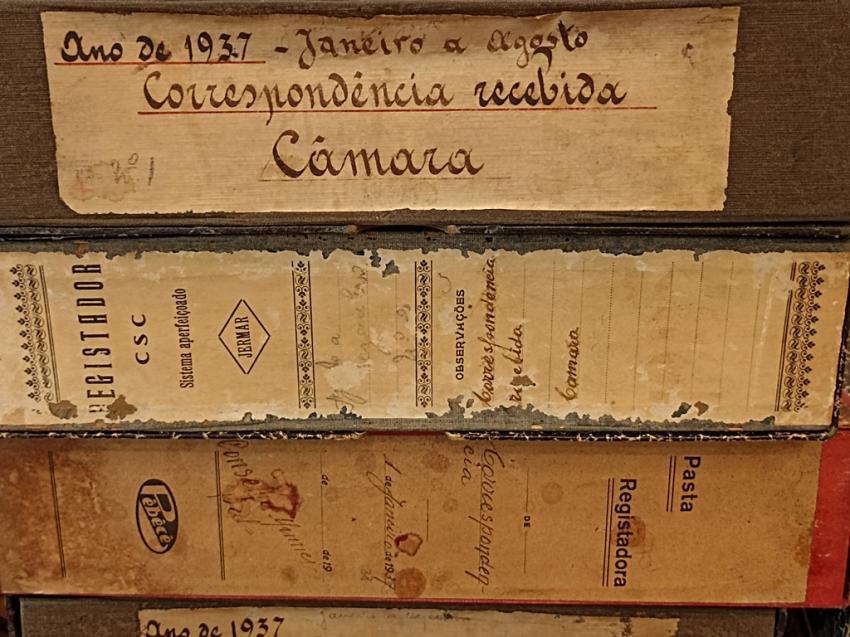 Ano de 1937 - Janeiro a Agosto
Correspondência recebida
Câmara
REGISTADOR
CSC
Sistema aperfeiçoado
JERMAR
OBSERVAÇÕES
Correspondência
recebida
Camara
Pasta
Registadora
DE
Corresponden-
cia
1 de Janeiro de 1937
a
de de 19
Pebêcê
Ano de 1937